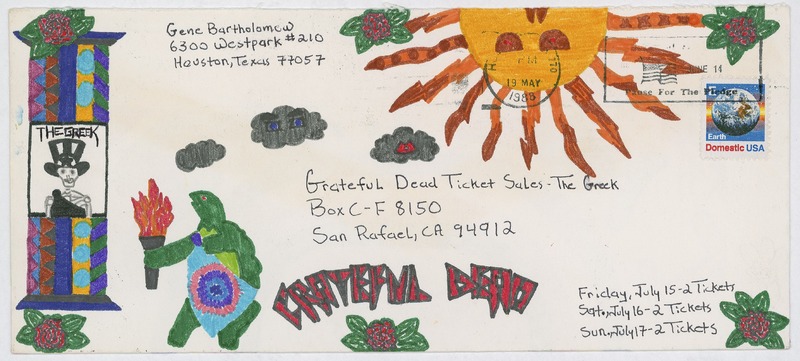 Gene Bartholomew
6300 Westpark #210
Houston, Texas 77057
H 770
PM
19 MAY
1988
NE 14
Pause For The Pledge
Earth
Domestic USA
THE GREEK
Grateful Dead Ticket Sales - The Greek
Box C-F 8150
San Rafael, CA 94912
GRATEFUL DEAD
Friday, July 15-2 Tickets
Sat., July 16-2 Tickets
Sun., July 17-2 Tickets